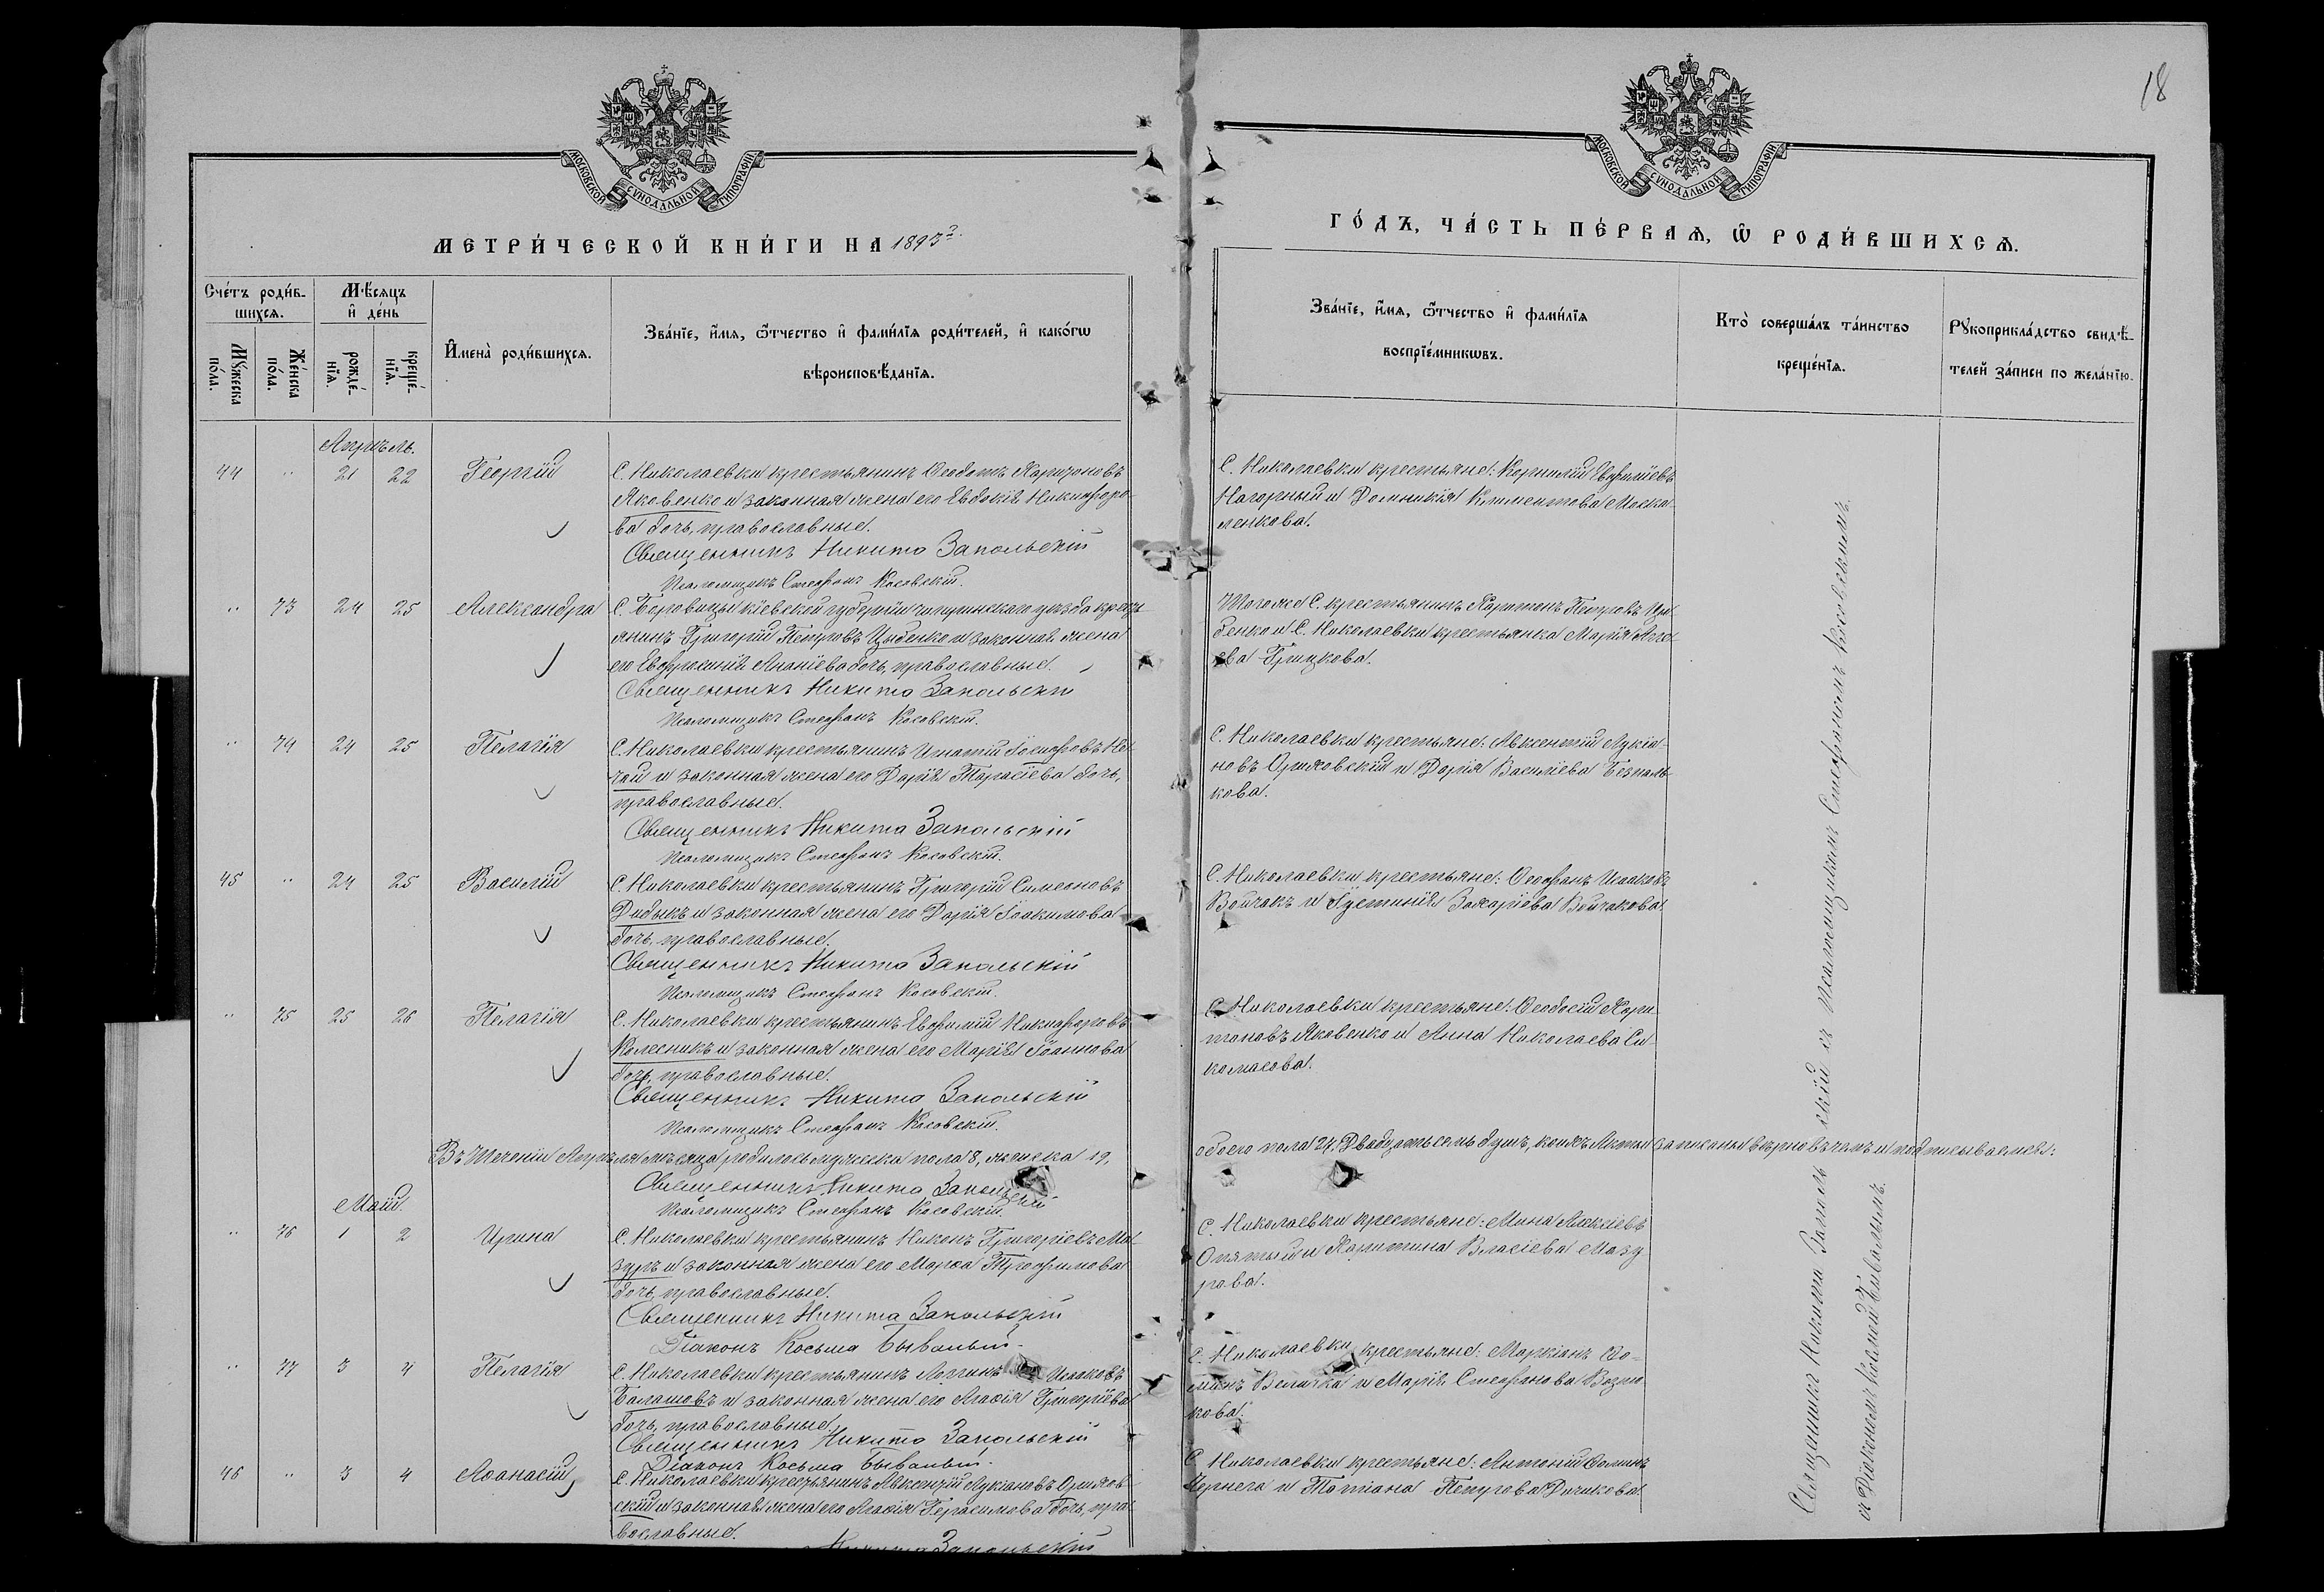 18
МОСКОВСКОЙ СѴНОДАЛЬНОЙ ТИПОГРАФІИ
МОСКОВСКОЙ СѴНОДАЛЬНОЙ ТИПОГРАФІИ
МЕТРИ́ЧЕСКОЙ КНИ́ГИ НА 1893
ГО́ДЪ, ЧА́СТЬ ПЕ́РВАѦ, Ѿ РОДИ́ВШИХСѦ.
Сче́тъ роди́в-
шихсѧ.
Мꙋ́жеска по́ла.
Же́нска по́ла.
Мѣ́сѧцъ
и҆ де́нь
рожде́-нїѧ.
креще́-нїѧ.
И҆мена̀ роди́вшихсѧ.
Зва́нїе, и҆́мѧ, ѻ҆́тчество и҆ фами́лїѧ роди́телей, и҆ како́гѡ
вѣроисповѣ́данїѧ.
Зва́нїе, и҆́мѧ, ѻ҆́тчество и҆ фами́лїѧ
воспрїе́мникѡвъ.
Кто̀ соверша́лъ та́инство
креще́нїѧ.
Рꙋкоприкла́дство свидѣ́-
телей за́писи по жела́нїю.
Апрѣль.
44 " 21 22 Георгій
С. Николаевки крестьянинъ Ѳеодотъ Харитоновъ
Яковенко и законная жена его Евдокія Никифоро-
ва дочь, православные.
Священникъ Никита Запольскій
Псаломщикъ Стефанъ Косовскій.
С. Николаевки крестьяне: Корнилій Евфиміевъ
Нагорный и Домникія Климентова Моска-
ленкова.
" 73 24 25 Александра
С. Боровицы кіевской губерніи чигиринскаго уѣзда кресть-
янинъ Григорій Петровъ Цыбенко и законная жена
его Евфросинія Ананіева дочь, православные.
Священникъ Никита Запольскій
Псаломщикъ Стефанъ Косовскій.
Тогоже С. крестьянинъ Харитонъ Петровъ Цы-
бенко и С. Николаевки крестьянка Марія
ева Грицкова.
" 74 24 25 Пелагія
С. Николаевки крестьянинъ Игнатій Іосифовъ Не-
чай и законная жена его Дарія Тарасіева дочь,
православные.
Священникъ Никита Запольскій
Псаломщикъ Стефанъ Косовскій.
С. Николаевки крестьяне: Авксентій Лукіа-
новъ Оржховскій и Дарія Василіева Безпаль-
кова.
45 " 24 25 Василій
С. Николаевки крестьянинъ Григорій Симеоновъ
Дидыкъ и законная жена его Дарія Іоакимова
дочь, православные.
Священникъ Никита Запольскій
Псаломщикъ Стефанъ Косовскій.
С. Николаевки крестьяне: Ѳеофанъ Исааковъ
Войчакъ и Іустинія Захаріева Войчакова.
" 75 25 26 Пелагія
С. Николаевки крестьянинъ Евфимій Никифоровъ
Колесникъ и законная жена его Марія Іоаннова
дочь, православные.
Священникъ Никита Запольскій
Псаломщикъ Стефанъ Косовскій.
С. Николаевки крестьяне: Ѳеодосій Хари-
тоновъ Яковенко и Анна Николаева Си-
комасова.
Въ Теченіи Апрѣля мѣсяца родилось мужеска пола 8, женска 19,
обоего пола 27. Двадцать семь душъ, записаны вѣрно въ чемъ и подписываемся:
Священникъ Никита Запольскій
Псаломщикъ Стефанъ Косовскій.
Май.
" 76 1 2 Ирина
С. Николаевки крестьянинъ Никонъ Григоріевъ Ма-
зуръ и законная жена его Марѳа Трофимова
дочь, православные.
Священникъ Никита Запольскій
Діаконъ Косьма Бывалый.
С. Николаевки крестьяне: Мина Алексіевъ
Опятый и Харитина Власіева Мазу-
рова.
" 77 3 4 Пелагія
С. Николаевки крестьянинъ Логгинъ Исааковъ
Балашовъ и законная жена его Агафія Григоріева
дочь, православные.
Священникъ Никита Запольскій
Діаконъ Косьма Бывалый.
С. Николаевки крестьяне: Маркіанъ Ѳо-
минъ Величка и Марія Стефанова Возни-
кова.
46 " 3 4 Аѳанасій
С. Николаевки крестьянинъ Авксентій Лукіановъ Оржхов-
скій и законная жена его Агафія Герасимова дочь, пра-
вославные.
Никита Запольскій
С. Николаевки крестьяне: Антоній Ѳоминъ
Чернега и Татіана Петрова Дичкова.
Священникъ Никита Запольскій съ псаломщикомъ Стефаномъ Косовскимъ
съ Діакономъ Косьмой Бывалымъ.